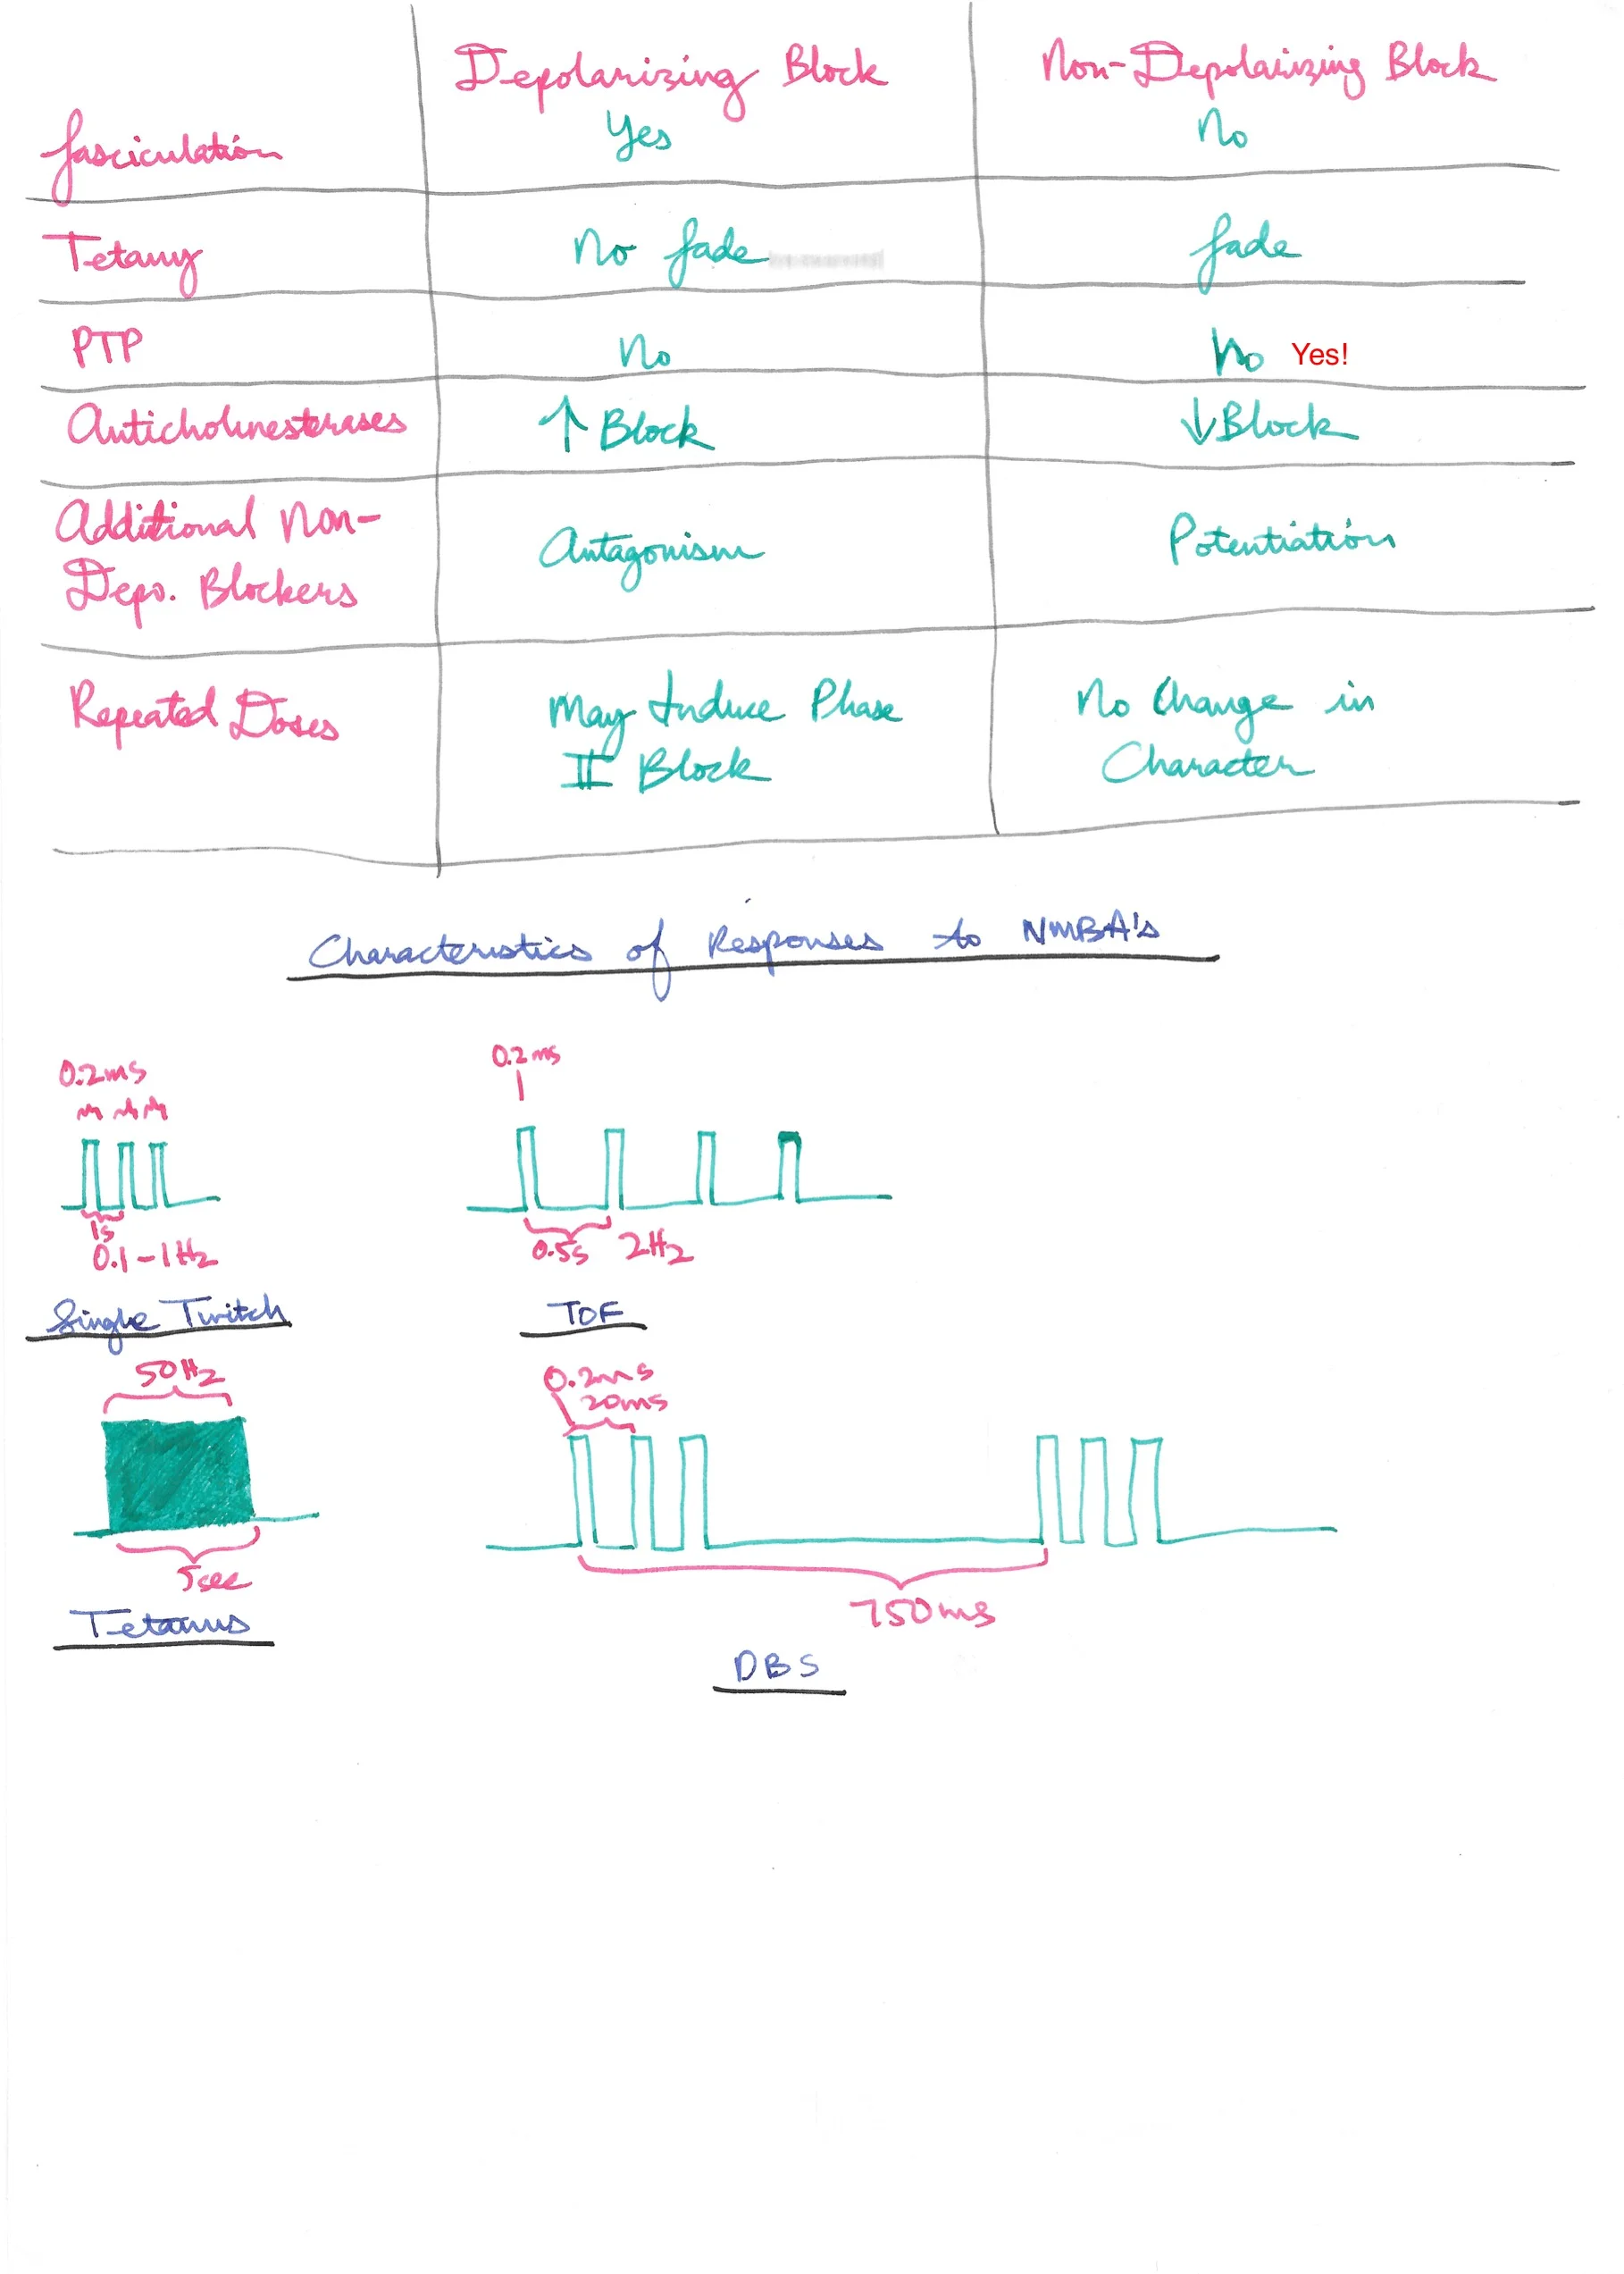 Depolarizing Block Non-Depolarizing Block
fasciculation Yes No
Tetany No fade fade
PTP No No Yes!
Anticholinesterases ↑ Block ↓ Block
Additional Non-
Depo. Blockers Antagonism Potentiation
Repeated Doses May Induce Phase No Change in
II Block Character
Characteristics of Responses to NMBA's
0.2ms 0.2ms
1s 0.5s 2Hz
0.1-1Hz
Single Twitch TOF
50Hz 0.2ms
20ms
5sec 750ms
Tetanus
DBS